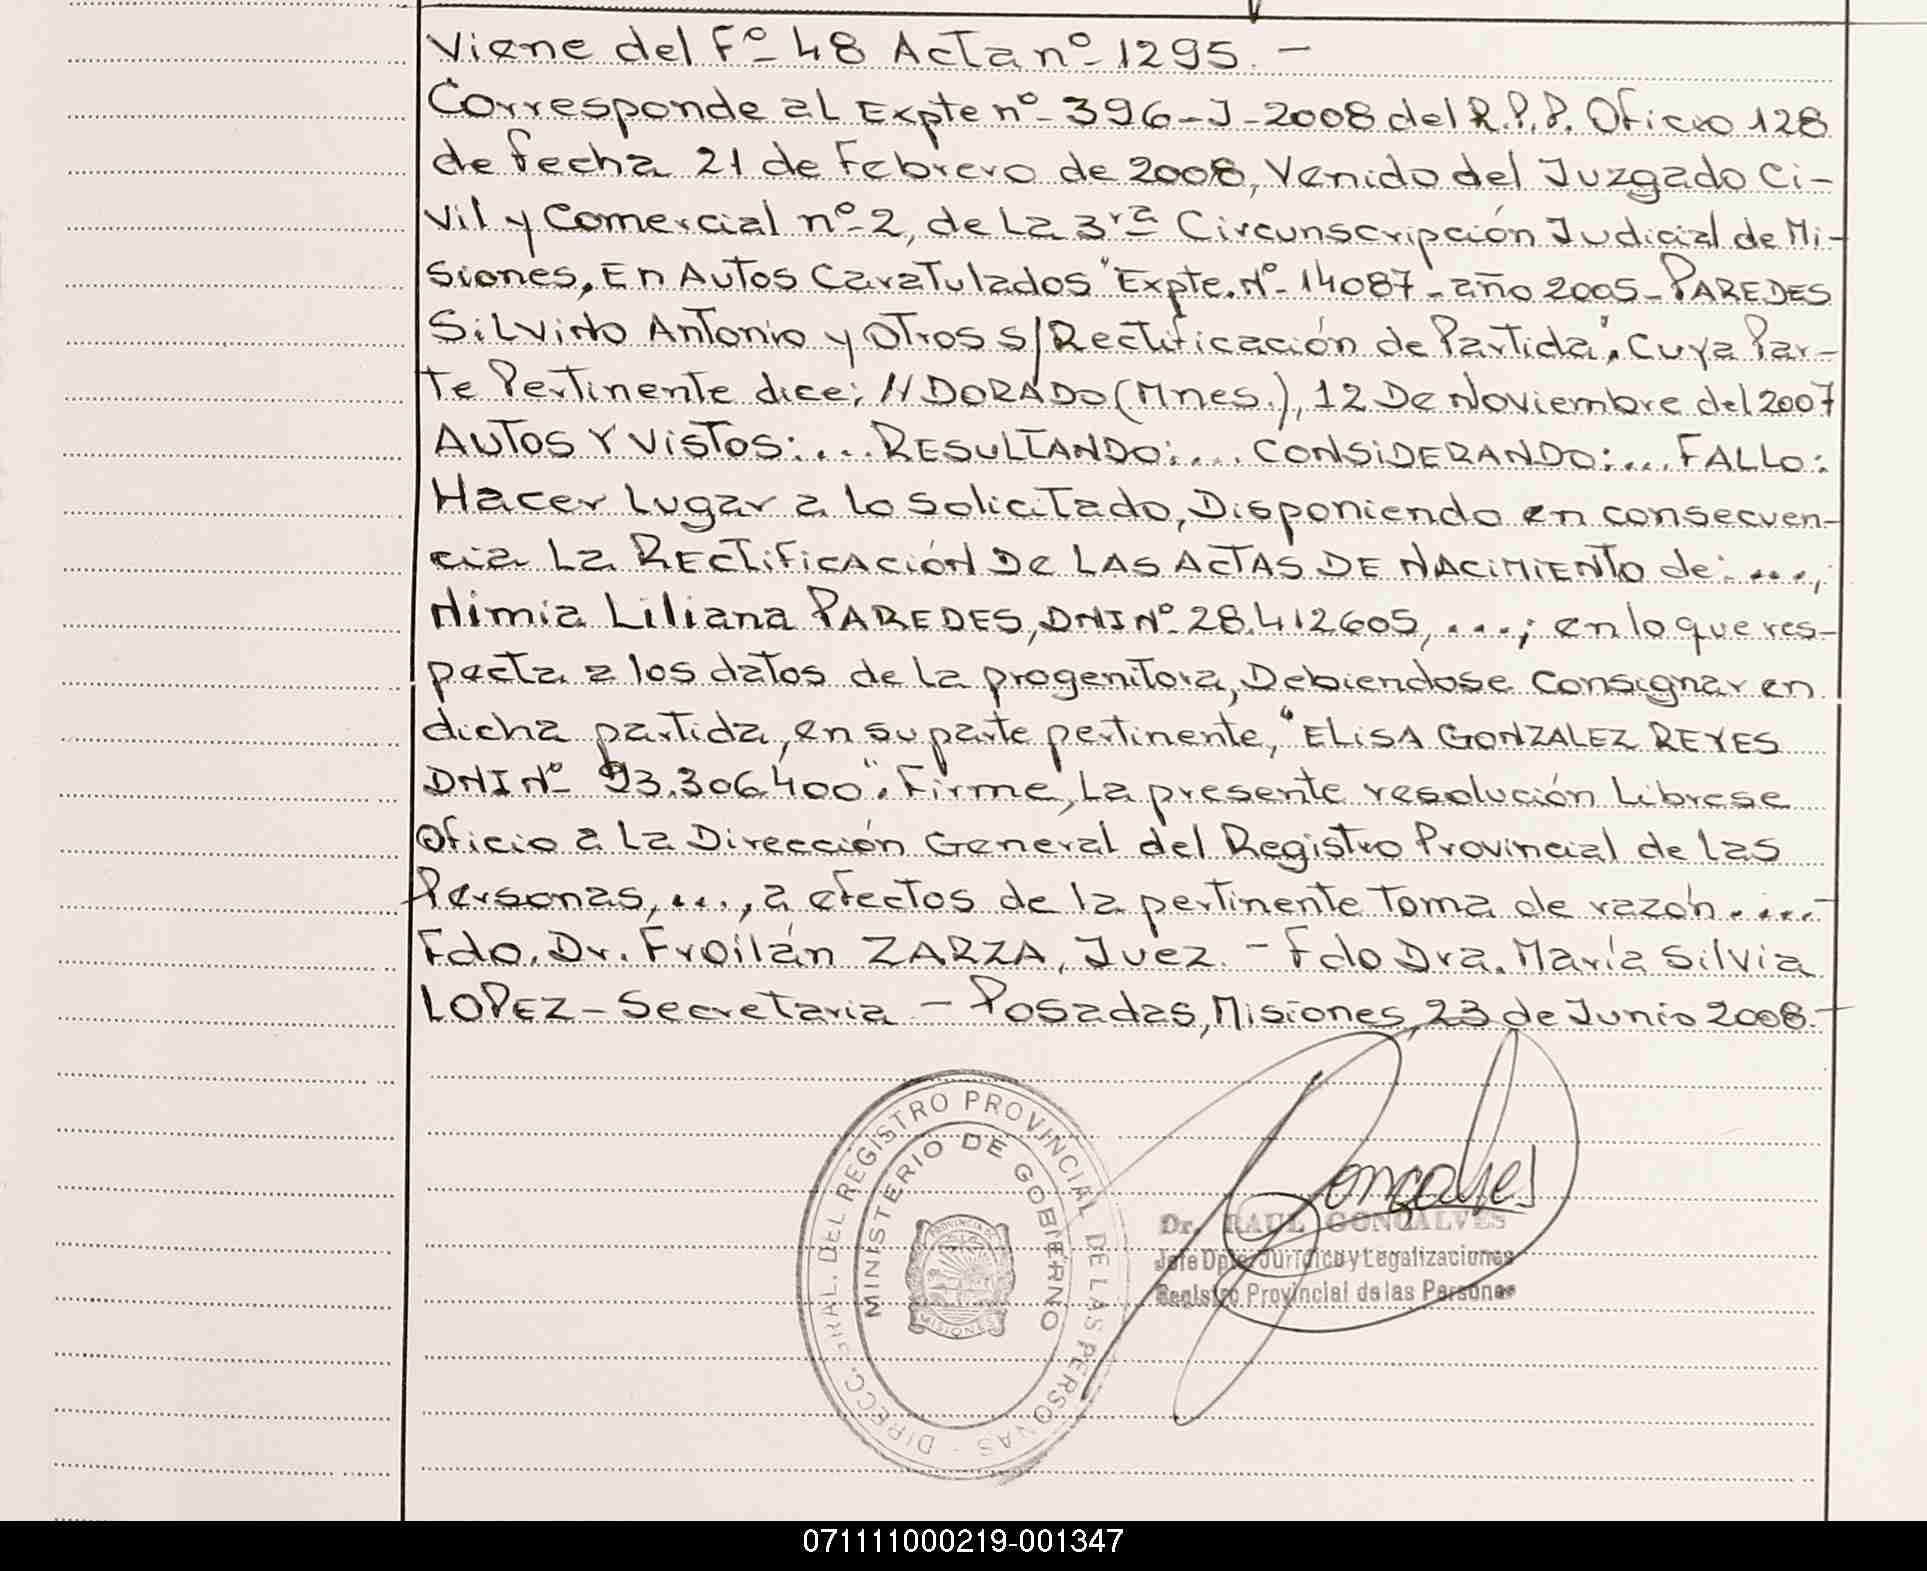 Viene del Fº 48 Acta nº 1295. -
Corresponde al Expte nº 396-J-2008 del R.P.P. Oficio 128
de fecha 21 de Febrero de 2008, Venido del Juzgado Ci-
vil y Comercial nº 2, de La 3ra Circunscripción Judicial de Mi-
siones, En Autos Caratulados "Expte. Nº 14087-año 2005-PAREDES
Silvino Antonio y otros s/Rectificación de Partida", Cuya Par-
te Pertinente dice; //DORADO (Mnes.), 12 De Noviembre del 2007
AUTOS Y VISTOS:... RESULTANDO:... CONSIDERANDO:... FALLO:
Hacer lugar a lo solicitado, Disponiendo en consecuen-
cia La RECTIFICACIÓN DE LAS ACTAS DE NACIMIENTO de: ...,
Nimia Liliana PAREDES, DNI Nº 28.412605, ...; en lo que res-
pecta a los datos de la progenitora, Debiendose Consignar en
dicha partida, en su parte pertinente, "ELISA GONZALEZ REYES
DNI Nº 93.306.400". Firme, La presente resolución Librese
Oficio a La Dirección General del Registro Provincial de las
Personas, ..., a efectos de la pertinente toma de razón. ....-
Fdo. Dr. Froilán ZARZA, Juez. - Fdo Dra. María Silvia
LOPEZ - Secretaria - Posadas, Misiones, 23 de Junio 2008.-
DIRECC. GRAL. DEL REGISTRO PROVINCIAL DE LAS PERSONAS -
MINISTERIO DE GOBIERNO
PROVINCIA DE
MISIONES
Goncalves
Dr. RAUL GONCALVES
Jefe Dpto. Jurídico y Legalizaciones
Registro Provincial de las Personas
071111000219-001347